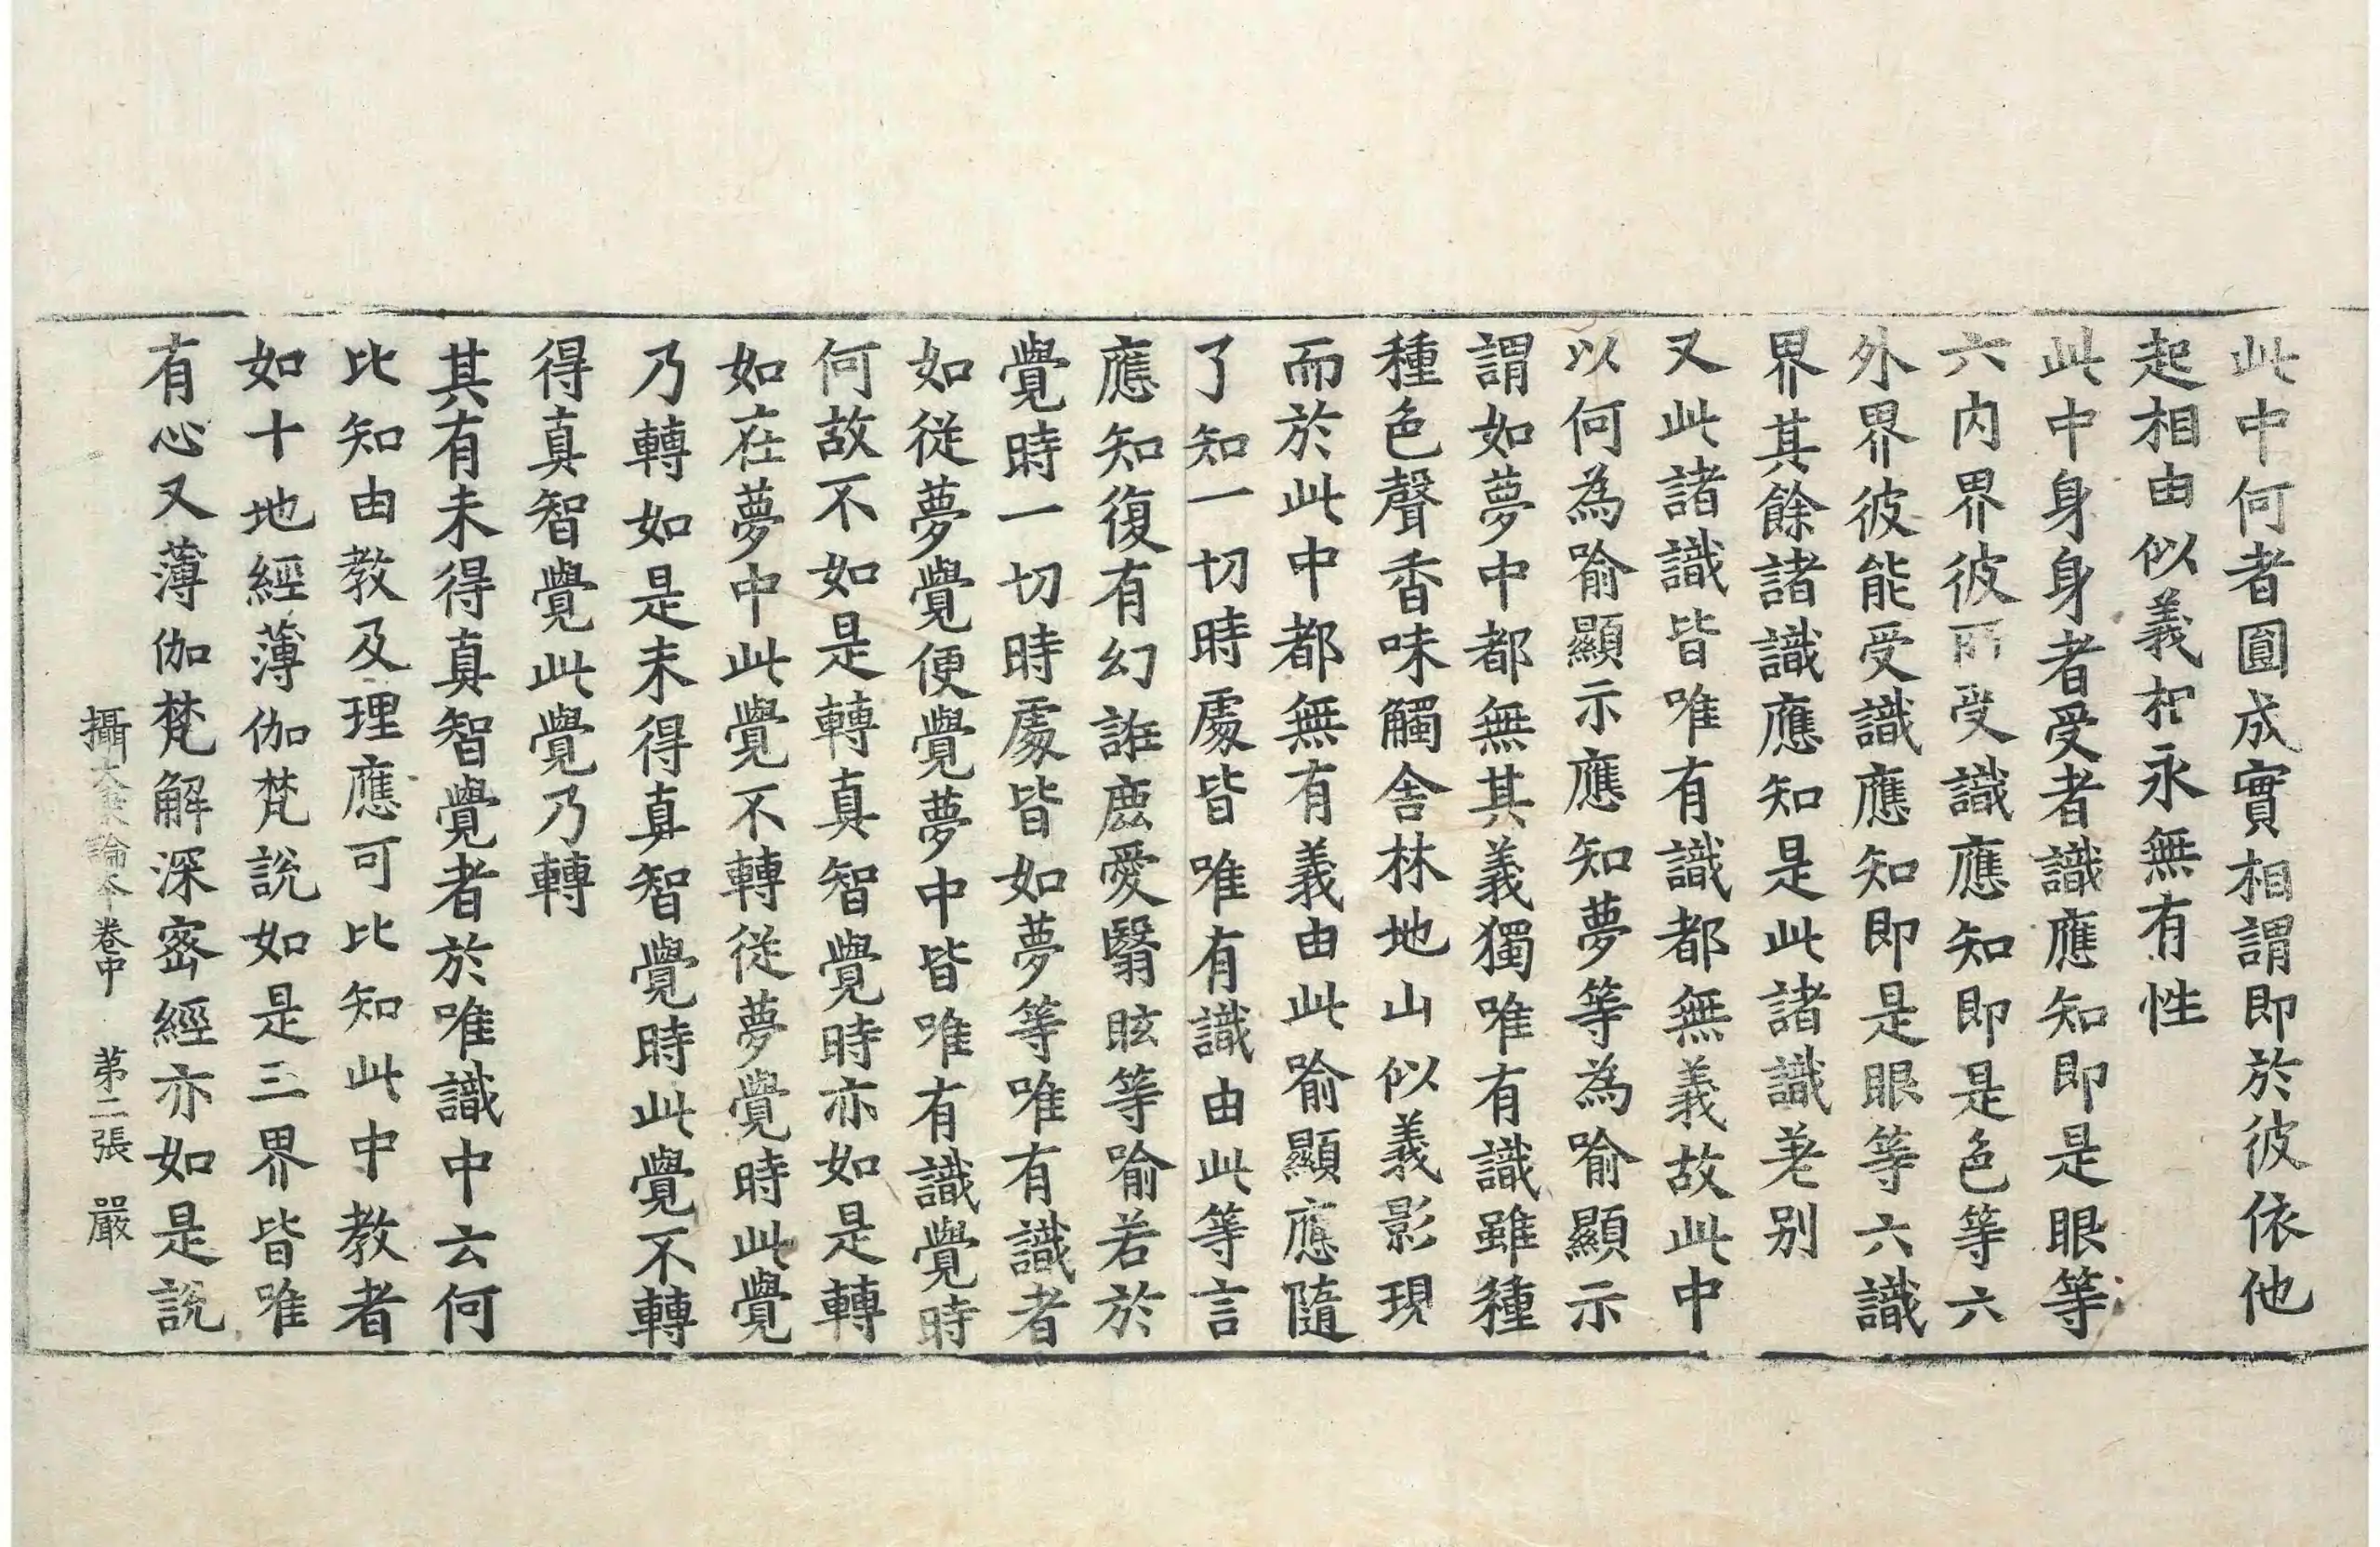 此中何者圓成實相謂即於彼依他
起相由似義相永無有性
此中身身者受者識應知即是眼等
六内界彼所受識應知即是色等六
外界彼能受識應知即是眼等六識
界其餘諸識應知是此諸識差别
又此諸識皆唯有識都無義故此中
以何為喻顯示應知夢等為喻顯示
謂如夢中都無其義獨唯有識雖種
種色聲香味觸舍林地山似義影現
而於此中都無有義由此喻顯應隨
了知一切時處皆唯有識由此等言
應知復有幻誑鹿愛瞖眩等喻若於
覺時一切時處皆如夢等唯有識者
如從夢覺便覺夢中皆唯有識覺時
何故不如是轉真智覺時亦如是轉
如在夢中此覺不轉從夢覺時此覺
乃轉如是未得真智覺時此覺不轉
得真智覺此覺乃轉
其有未得真智覺者於唯識中云何
比知由教及理應可比知此中教者
如十地經薄伽梵說如是三界皆唯
有心又薄伽梵解深密經亦如是說
攝大乘論本卷中 第二張 嚴